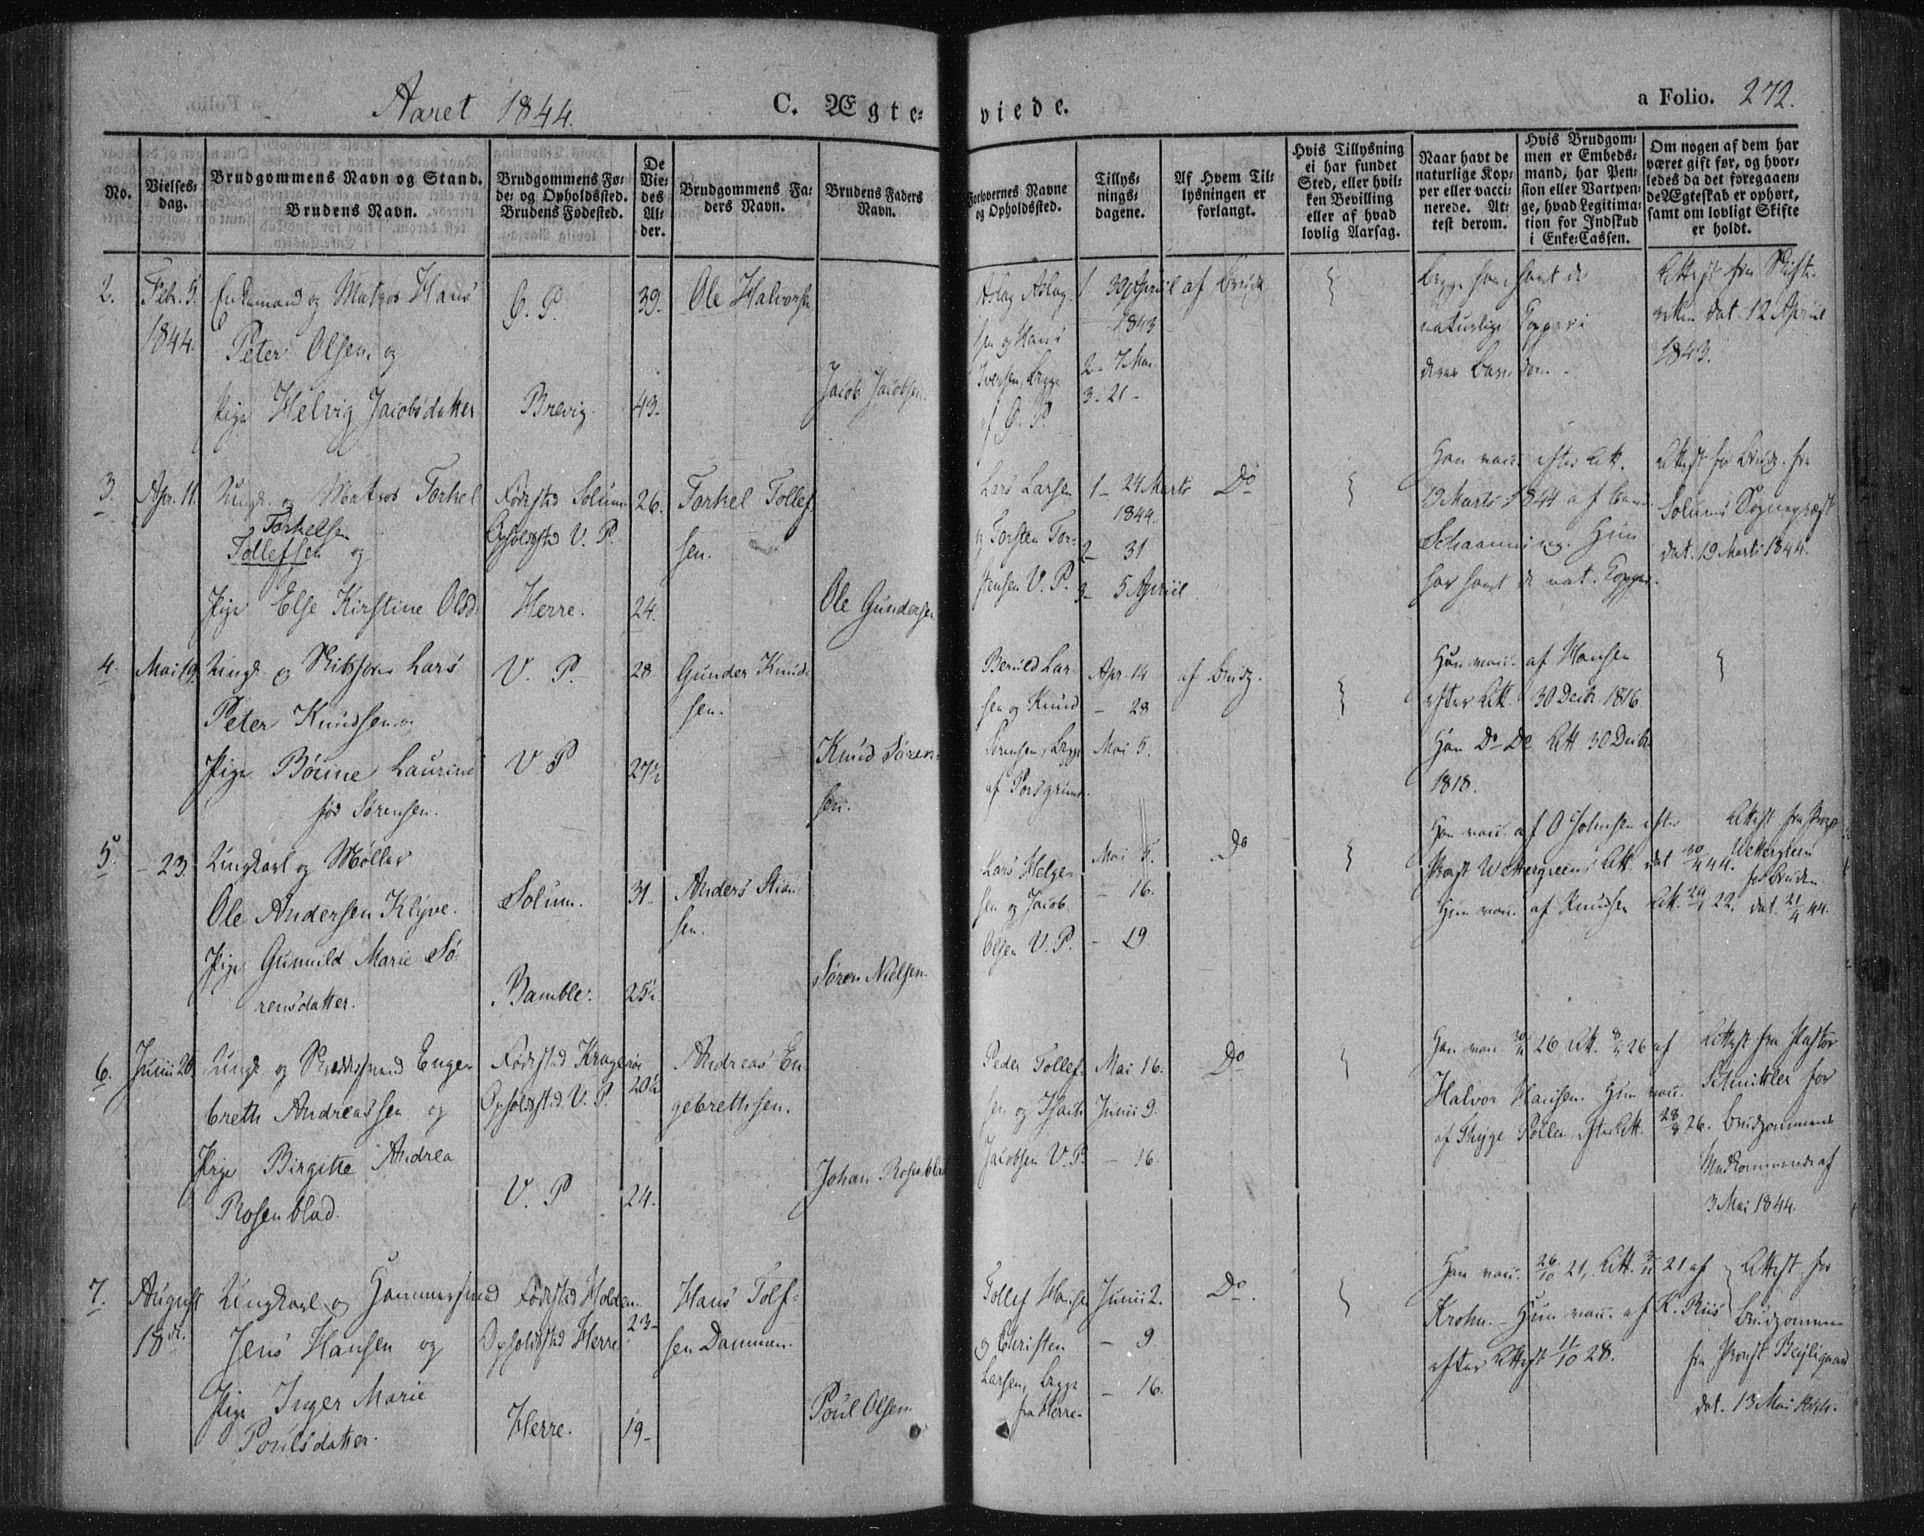 Aaret 1844.
C. Ægte=
viede.
a Folio. 272.
No.
Vielses-
dag.
Brudgommens Navn og Stand.
Brudens Navn.
Brudgommens Fø-
de- og Opholdssted.
Brudens Fødested.
De
Vie-
des
Al-
der.
Brudgommens Fa-
ders Navn.
Brudens Faders
Navn.
Forlovernes Navne
og Opholdssted.
Tillys-
nings-
dagene.
Af Hvem Til-
lysningen er
forlangt.
Hvis Tillysning
ei har fundet
Sted, eller hvil-
ken Bevilling
eller af hvad
lovlig Aarsag.
Naar havt de
naturlige Kop-
per eller vacci-
nerede. At-
test derom.
Hvis Brudgom-
men er Embeds-
mand, har Pen-
sion eller Vartpen-
ge, hvad Legitima-
tion for Indskud
i Enke-Cassen.
Om nogen af dem har
været gift før, og hvor-
ledes da det foregaaen-
de Ægteskab er ophørt,
samt om lovligt Skifte
er holdt.
2.
Feb. 5.
1844.
Enkemand og Matros Hans
Peter Olsen og
Pige Helvig Jacobsdatter
Ø. P.
Brevig.
39.
43.
Ole Halvorsen
Jacob Jacobsen
Aslag Aslag-
sen og Hans
Iversen, begge
af Ø. P
1 30 April
1843
2- 7 Mai
3- 21 -
af Brudg.
begge have havt de
naturlige Copper i
deres Barndom.
Attest fra Skifte-
retten dat. 12 April
1843.
3.
Apr. 11.
Ungk. og Matros Torkel
Torkelsen
Tollefsen og
Pige Else Kirstine Olsd.
Fødested Solum
Opholdsted V. P.
Herre.
26.
24.
Torkel Tollef
sen.
Ole Gundersen
Lars Larsen
og Torsten Tor-
stensen V. P.
1 - 24 Marts
1844.
2- 31
3- 5 April
Do
Han vacc. efter Att.
19 Marts 1844 af
Schaanning. Hun
har havt de nat. Copper.
Attest for Brudg. fra
Solums Sognepræst
dat. 19 Marts 1844.
4.
Mai 19.
Ungk. og Lars
Peter Knudsen og
Pige Børine Laurine
fød Sørensen.
V. P.
V. P
28
27½
Gunder Knud-
sen.
Knud Søren-
sen.
Berild Lar-
sen og Knud
Sørensen, begge
af Porsgrund.
Apr. 14
- 28
Mai 5.
af Brudg.
Han vacc. af Hansen
efter Att. 30 Decbr 1816
Hun Do Do Att 30 Decbr
1818.
5.
- 23.
Ungkarl og Møller
Ole Andersen Klyve.
Pige Gunnild Marie Sø-
rensdatter.
Solum.
Bamble.
31-
25½
Anders Stian-
sen.
Søren Nielsen.
Lars Helge-
sen og Jacob
Olsen V. P.
Mai 5.
- 16.
- 19
Do
Han vacc. af O Johnsen efter
Provst Wettergreens Att. dat 20/4 44.
Hun vacc. af Knudsen Att. 22.
Attest fra Provst
Wettergreen
for Bruden
dat. 21/4 44.
6.
Junii 20.
Ungk. og Enge-
breth Andreassen og
Pige Birgitte Andrea
Rosenblad.
Fødested Kragerøe
Opholdsted V. P.
V. P
20½
24.
Andreas En-
gebrethsen.
Johan Rosenblad
Peder Tollef-
sen og Isach
Jacobsen V. P.
Mai 16.
Junii 9.
- 16.
Do
Han vacc. 26 Att. 26 af
Halvor Hansen. Hun vacc.
af Møller efter Att. 26.
Attest fra Pastor
Schnitler for
Brudgommens
Vedkommende af
3 Mai 1844.
7.
August
18de.
Ungkarl og
Jens Hansen og
Pige Inger Marie
Poulsdatter.
Fødested Holden.
Opholdsted Herre
Herre.
23-
19-
Hans Tolf-
sen Dammen.
Poul Olsen
Tollef Hansen
og Christen
Larsen, begge
fra Herre.
Junii 2.
- 9.
- 16.
Do.
Han vacc. 26/10 21, Att. 21 af
Krohn. Hun vacc. af K. Riis
efter Attest 11/10 28.
Attest for
Brudgommen
fra Provst
dat. 13 Mai 1844.